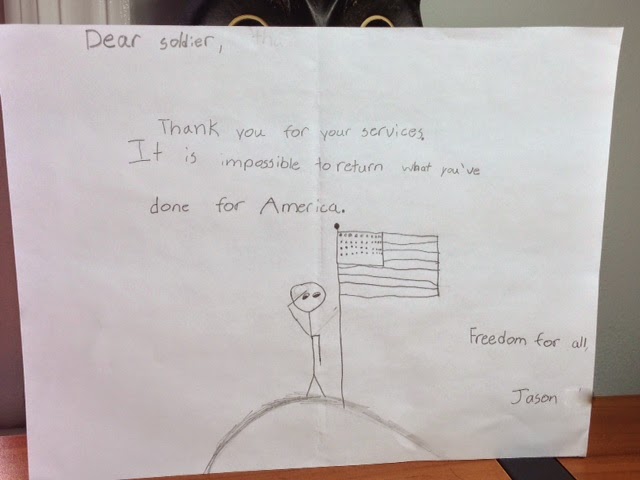 Dear soldier,
Thank you for your services.
It is impossible to return what you've
done for America.
Freedom for all,
Jason